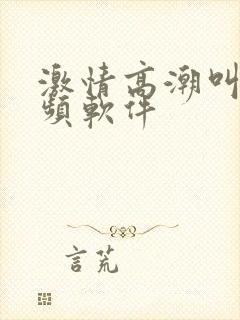 激情高潮叫
頻軟件
言荒